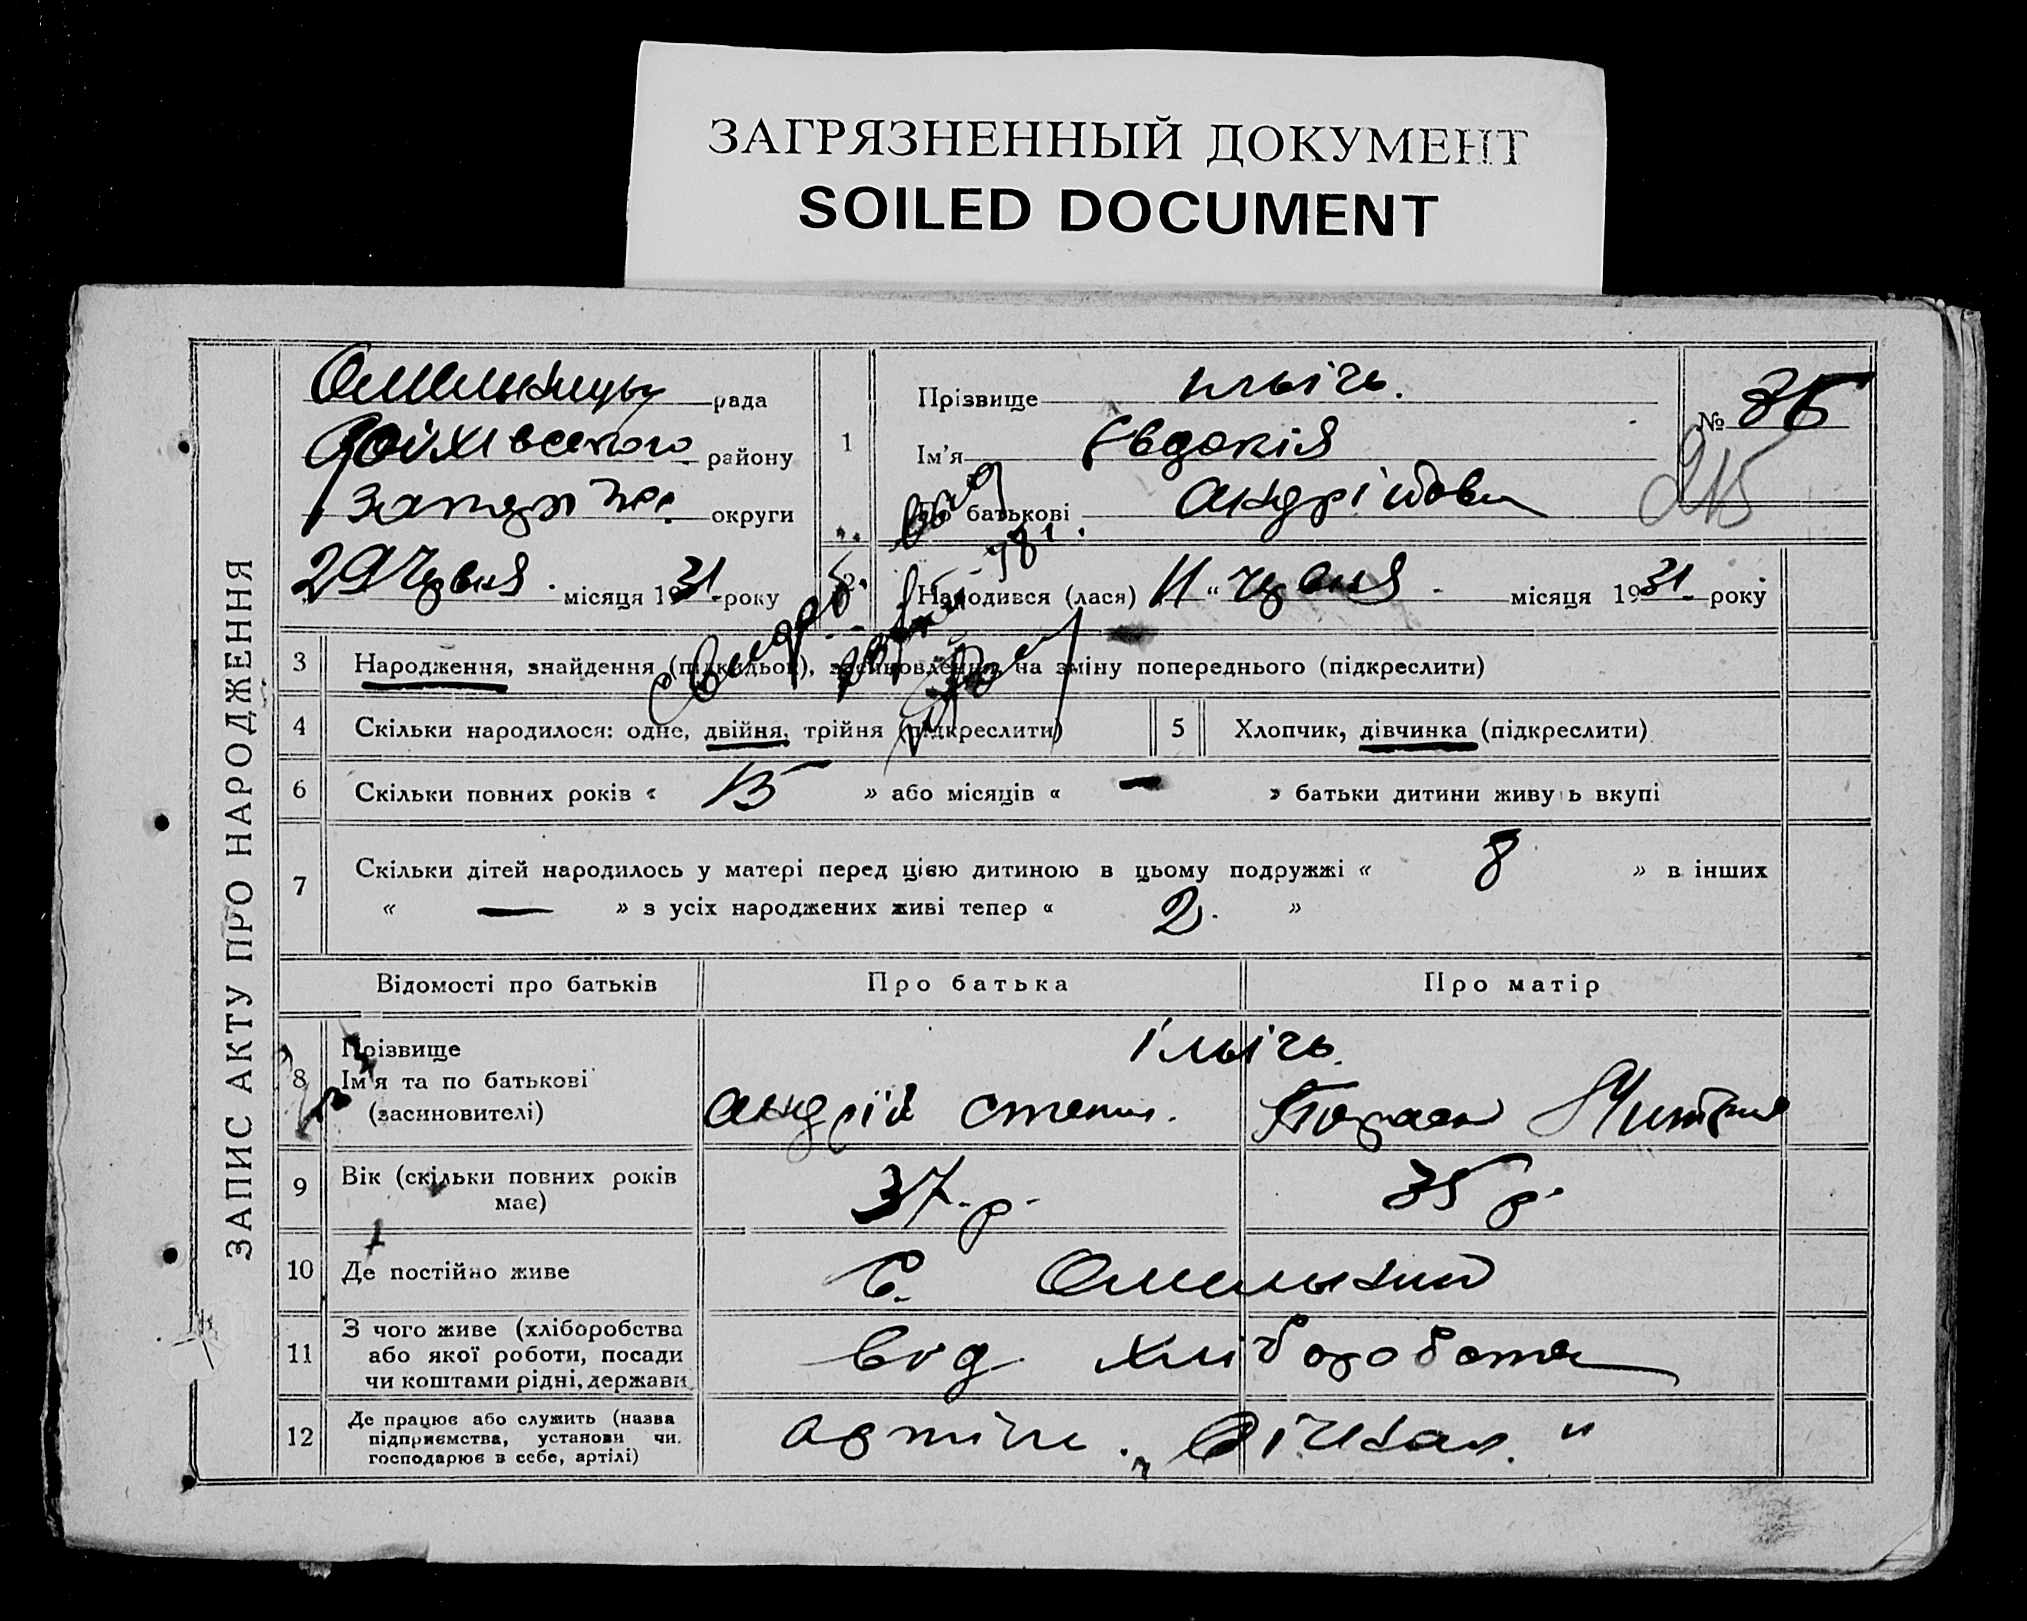 ЗАГРЯЗНЕННЫЙ ДОКУМЕНТ
SOILED DOCUMENT
ЗАПИС АКТУ ПРО НАРОДЖЕННЯ
рада
району
округи
29 Червня місяця 1931 року
1 Прізвище Ільічь.
Ім'я Євдокія
По батькові Андрійовна
№ 36
215
2 Народився (лася) 11 “ червня - місяця 1931 року
3 Народження, знайдення (підкидьок), засиновлення, на зміну попереднього (підкреслити)
4 Скільки народилося: одне, двійня, трійня (підкреслити)
5 Хлопчик, дівчинка (підкреслити)
6 Скільки повних років « 15 » або місяців « — » батьки дитини живуть вкупі
7 Скільки дітей народилось у матері перед цією дитиною в цьому подружжі « 8 » в інших
« — » з усіх народжених живі тепер « 2. »
Відомості про батьків Про батька Про матір
8 Прізвище Ільічь.
Ім'я та по батькові
(засиновителі) Андрій Степан.
9 Вік (скільки повних років 37 р. 35 р.
має)
10 Де постійно живе С. Омельник
11 З чого живе (хліборобства
або якої роботи, посади Від хлібороботва
чи коштами рідні, держави
12 Де працює або служить (назва
підприємства, установи чи
господарює в себе, артілі) артіль